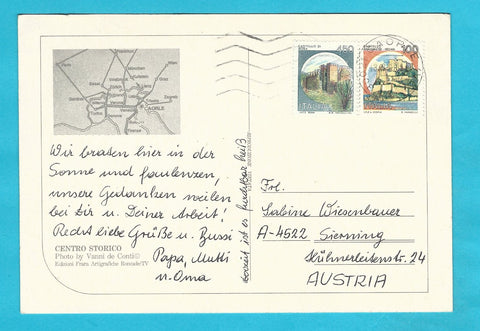 CAORLE
Wir braten hier in der
Sonne und faulenzen,
unsere Gedanken weilen
bei Dir u. Deiner Arbeit!
Recht liebe Grüße u. Bussi
Papa, Mutti
u. Oma
CENTRO STORICO
Photo by Vanni de Conti©
Edizioni Frara Artigrafiche Roncade/TV
derzeit ist es furchtbar heiß
450
ITALIA
400
Frl.
Sabine Wiesenbauer
A-4522 Sierning
Hühnerleitenstr. 24
AUSTRIA